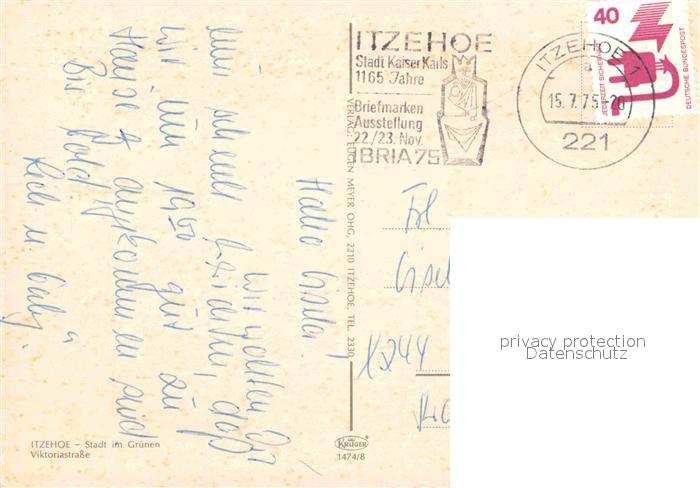 ITZEHOE
Stadt Kaiser Karls
1165 Jahre
Briefmarken
Ausstellung
22./23. Nov.
IBRIA 75
ITZEHOE 1
a
15.7.75-20
221
40
JEDERZEIT SICHERHEIT
DEUTSCHE BUNDESPOST
Hallo Gisela!
Wir wollten Dir
nur schnell berichten, daß
wir um 19.50 gut zu
Hause angekommen sind
Bis bald
u. Gaby.
VERLAG: EUGEN MEYER OHG, 2210 ITZEHOE, TEL. 2330
Frl
Gisel
privacy protection
Datenschutz
ITZEHOE – Stadt im Grünen
Viktoriastraße
KRÜGER
1474/8